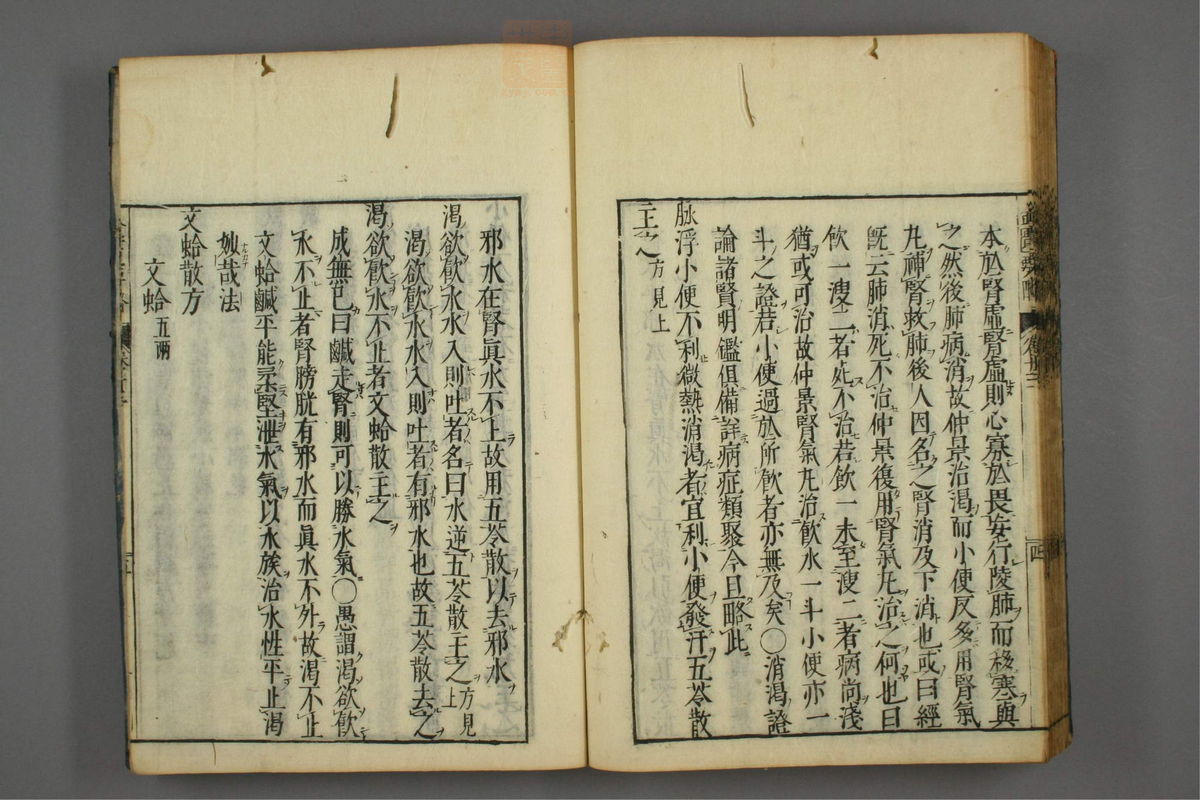 本於腎虛腎虛則心寡於畏妄行陵肺而移寒與
之然後肺病消故仲景治渴而小便反多用腎氣
丸補腎救肺後人因名之腎消及下消也或曰經
既云肺消死不治仲景復用腎氣丸治之何也曰
飲一溲二者死不治若飲一未至溲二者病尚淺
猶或可治故仲景腎氣丸治飲水一斗小便亦一
斗之證若小便過於所飲者亦無及矣〇消渴證
論諸賢明鑑俱備詳病症類聚今且略此
脉浮小便不利微熱消渴者宜利小便發汗五苓散
主之方見上
邪水在腎眞水不上故用五苓散以去邪水
渴欲飮水水入則吐者名曰水逆五苓散主之方見上
渴欲飮水水入則吐者有邪水也故五苓散去之
渴欲飮水不止者文蛤散主之
成無已曰鹹走腎則可以勝水氣〇愚謂渴欲飮
水不止者腎膀胱有邪水而眞水不外故渴不止
文蛤鹹平能柔堅泄水氣以水族治水性平止渴
妙哉法
文蛤散方
文蛤五兩